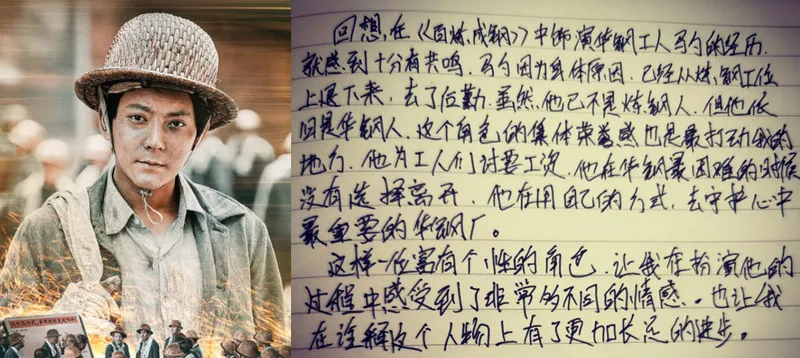 回想,在《百炼成钢》中饰演华钢工人马勺的经历,
就感到十分有共鸣。马勺因为身体原因,已经从炼钢工位
上退下来,去了后勤。虽然,他已不是炼钢人,但他依
旧是华钢人,这个角色的集体荣誉感也是最打动我的
地方,他为工人们讨要工资,他在华钢最困难的时候
没有选择离开,他在用自己的方式,去守护心中
最重要的华钢厂。
这样一位富有个性的角色,让我在扮演他的
过程中感受到了非常多不同的情感。也让我
在诠释这个人物上有了更加长足的进步。